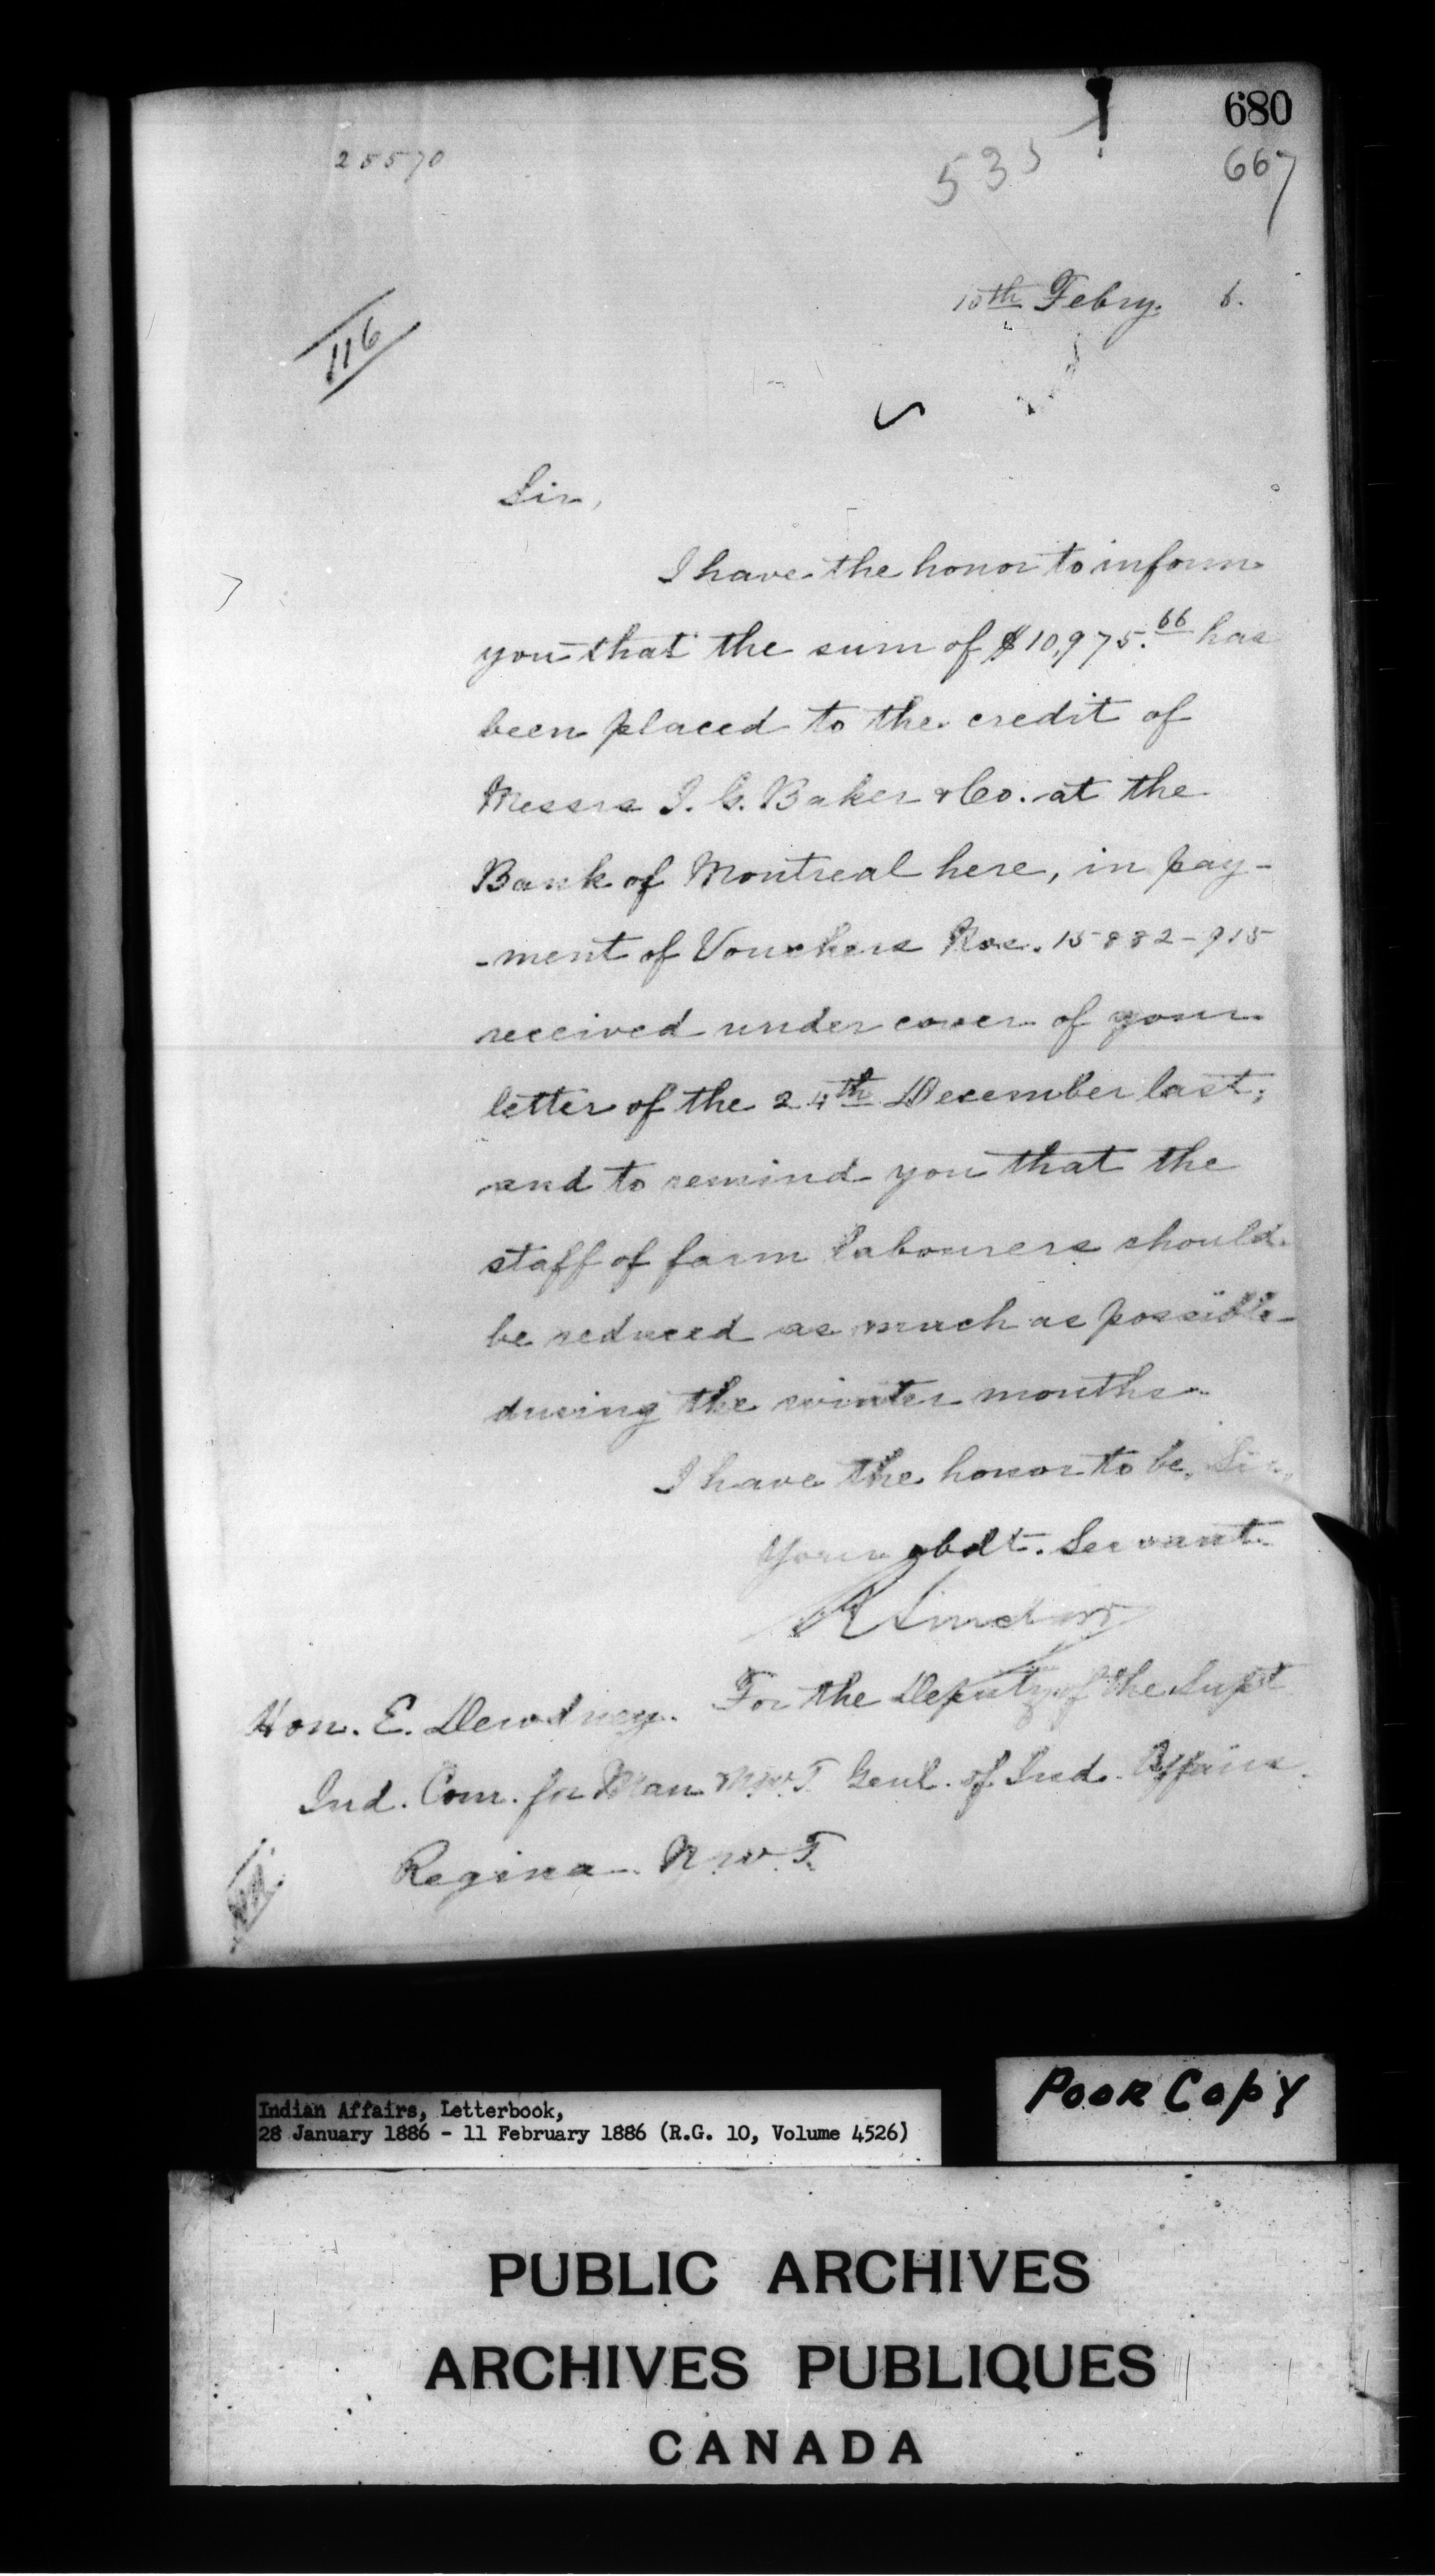 680
25570
535
667
10th Febry. 6.
116
Sir,
I have the honor to inform
you that the sum of $10,975.66 has
been placed to the credit of
Messrs I. G. Baker & Co. at the
Bank of Montreal here, in pay-
-ment of Vouchers Nos. 15882-915
received under cover of your
letter of the 24th December last;
and to remind you that the
staff of farm labourers should
be reduced as much as possible
during the winter months.
I have the honor to be, Sir,
Your obdt. Servant
For the Deputy of the Supt
Hon. E. Dewdney.
Genl. of Ind. Affairs.
Ind. Com. for Man. N.W.T.
Regina N.W.T.
Poor Copy
Indian Affairs, Letterbook,
28 January 1886 - 11 February 1886 (R.G. 10, Volume 4526)
PUBLIC ARCHIVES
ARCHIVES PUBLIQUES
CANADA